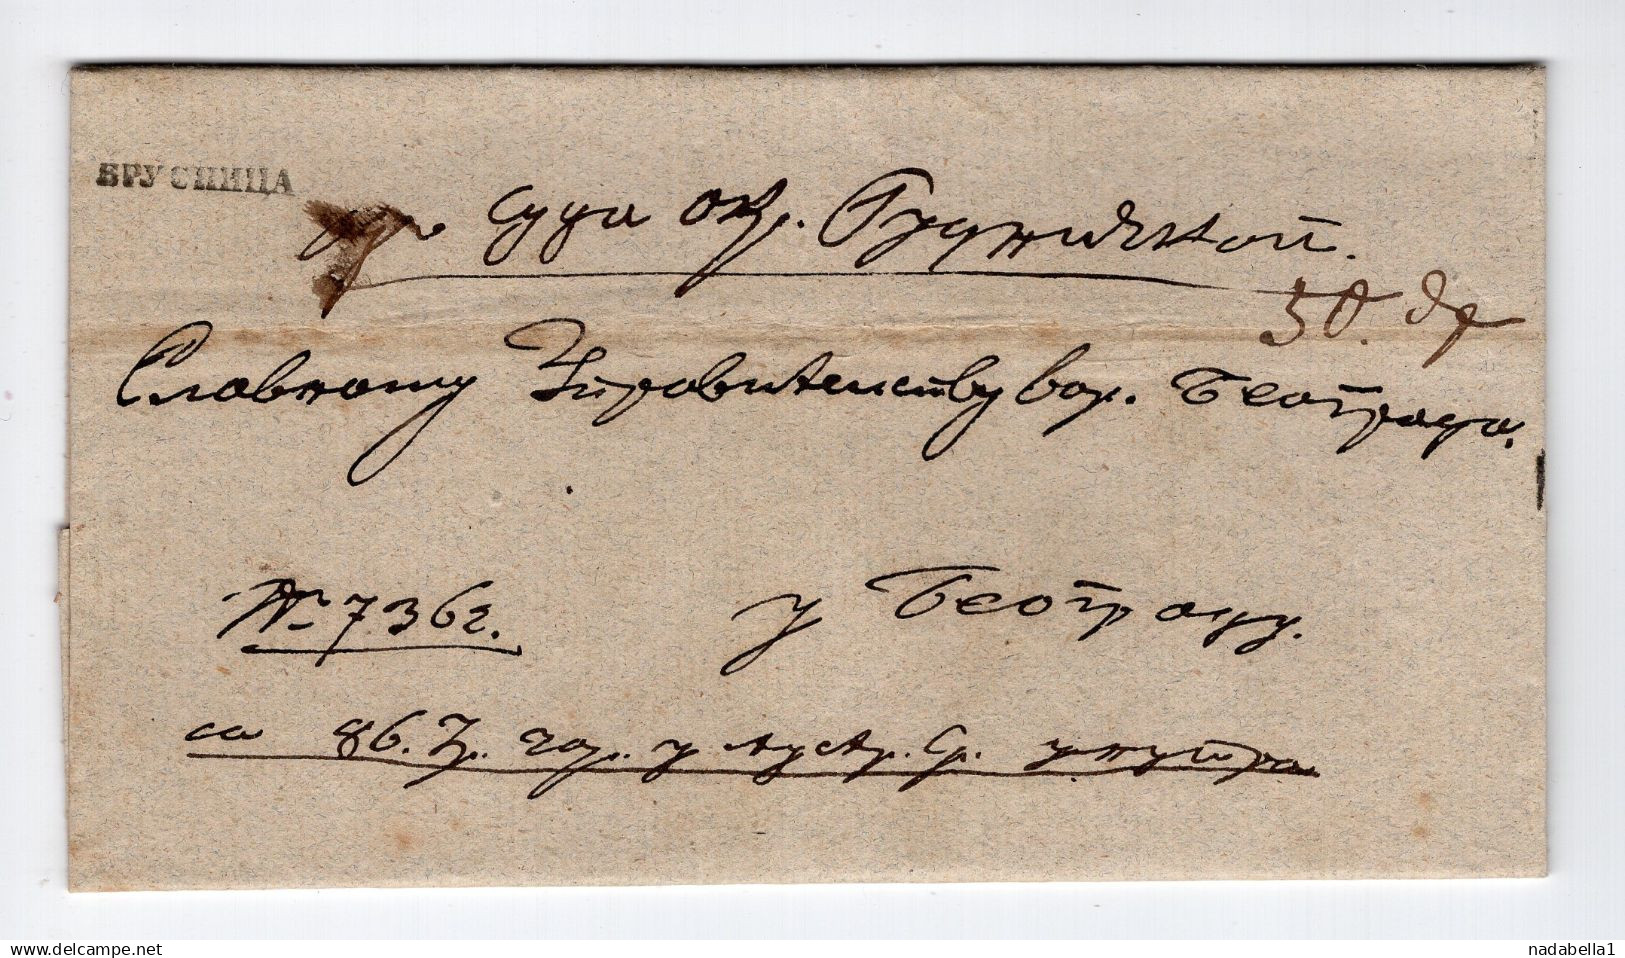 БРУСНИЦА
Суда окр. Рудничког.
50. др
Славному Управителству вар. Београда.
№ 7362.
у Београду.
са 86. гор. у аустр. ср. упутра
Delcampe.net
nadabella1